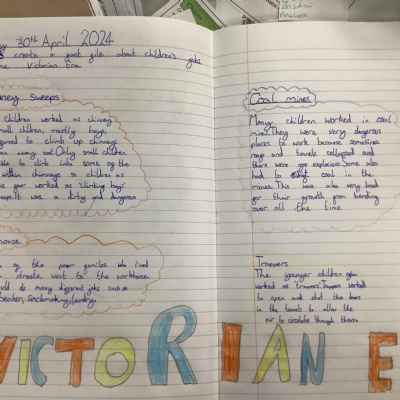 30th April 2024
create a fact file about children's jobs
Victorian Era
sweeps
children worked as chimney
small children, mostly boys,
to climb up chimneys
away soot. Only small children
able to climb into some of the
within chimneys so children as
year worked as 'climbing boys'
It was a dirty and dangerous
house
as the poor families who lived
streets, went to the workhouse
could do many different jobs such as
laundry
Coal mines
Many children worked in coal
mines. They were very dangerous
places to work because sometimes
roofs and tunnels collapsed and
there were gas explosion. Some also
had to coal in the
mines. This was also very bad
for their growth from bending
over all the time.
Trappers
The younger children often
worked as trappers. Trappers worked
to open and shut the doors
in the tunnels to allow the
air to circulate through them
VICTORIAN E